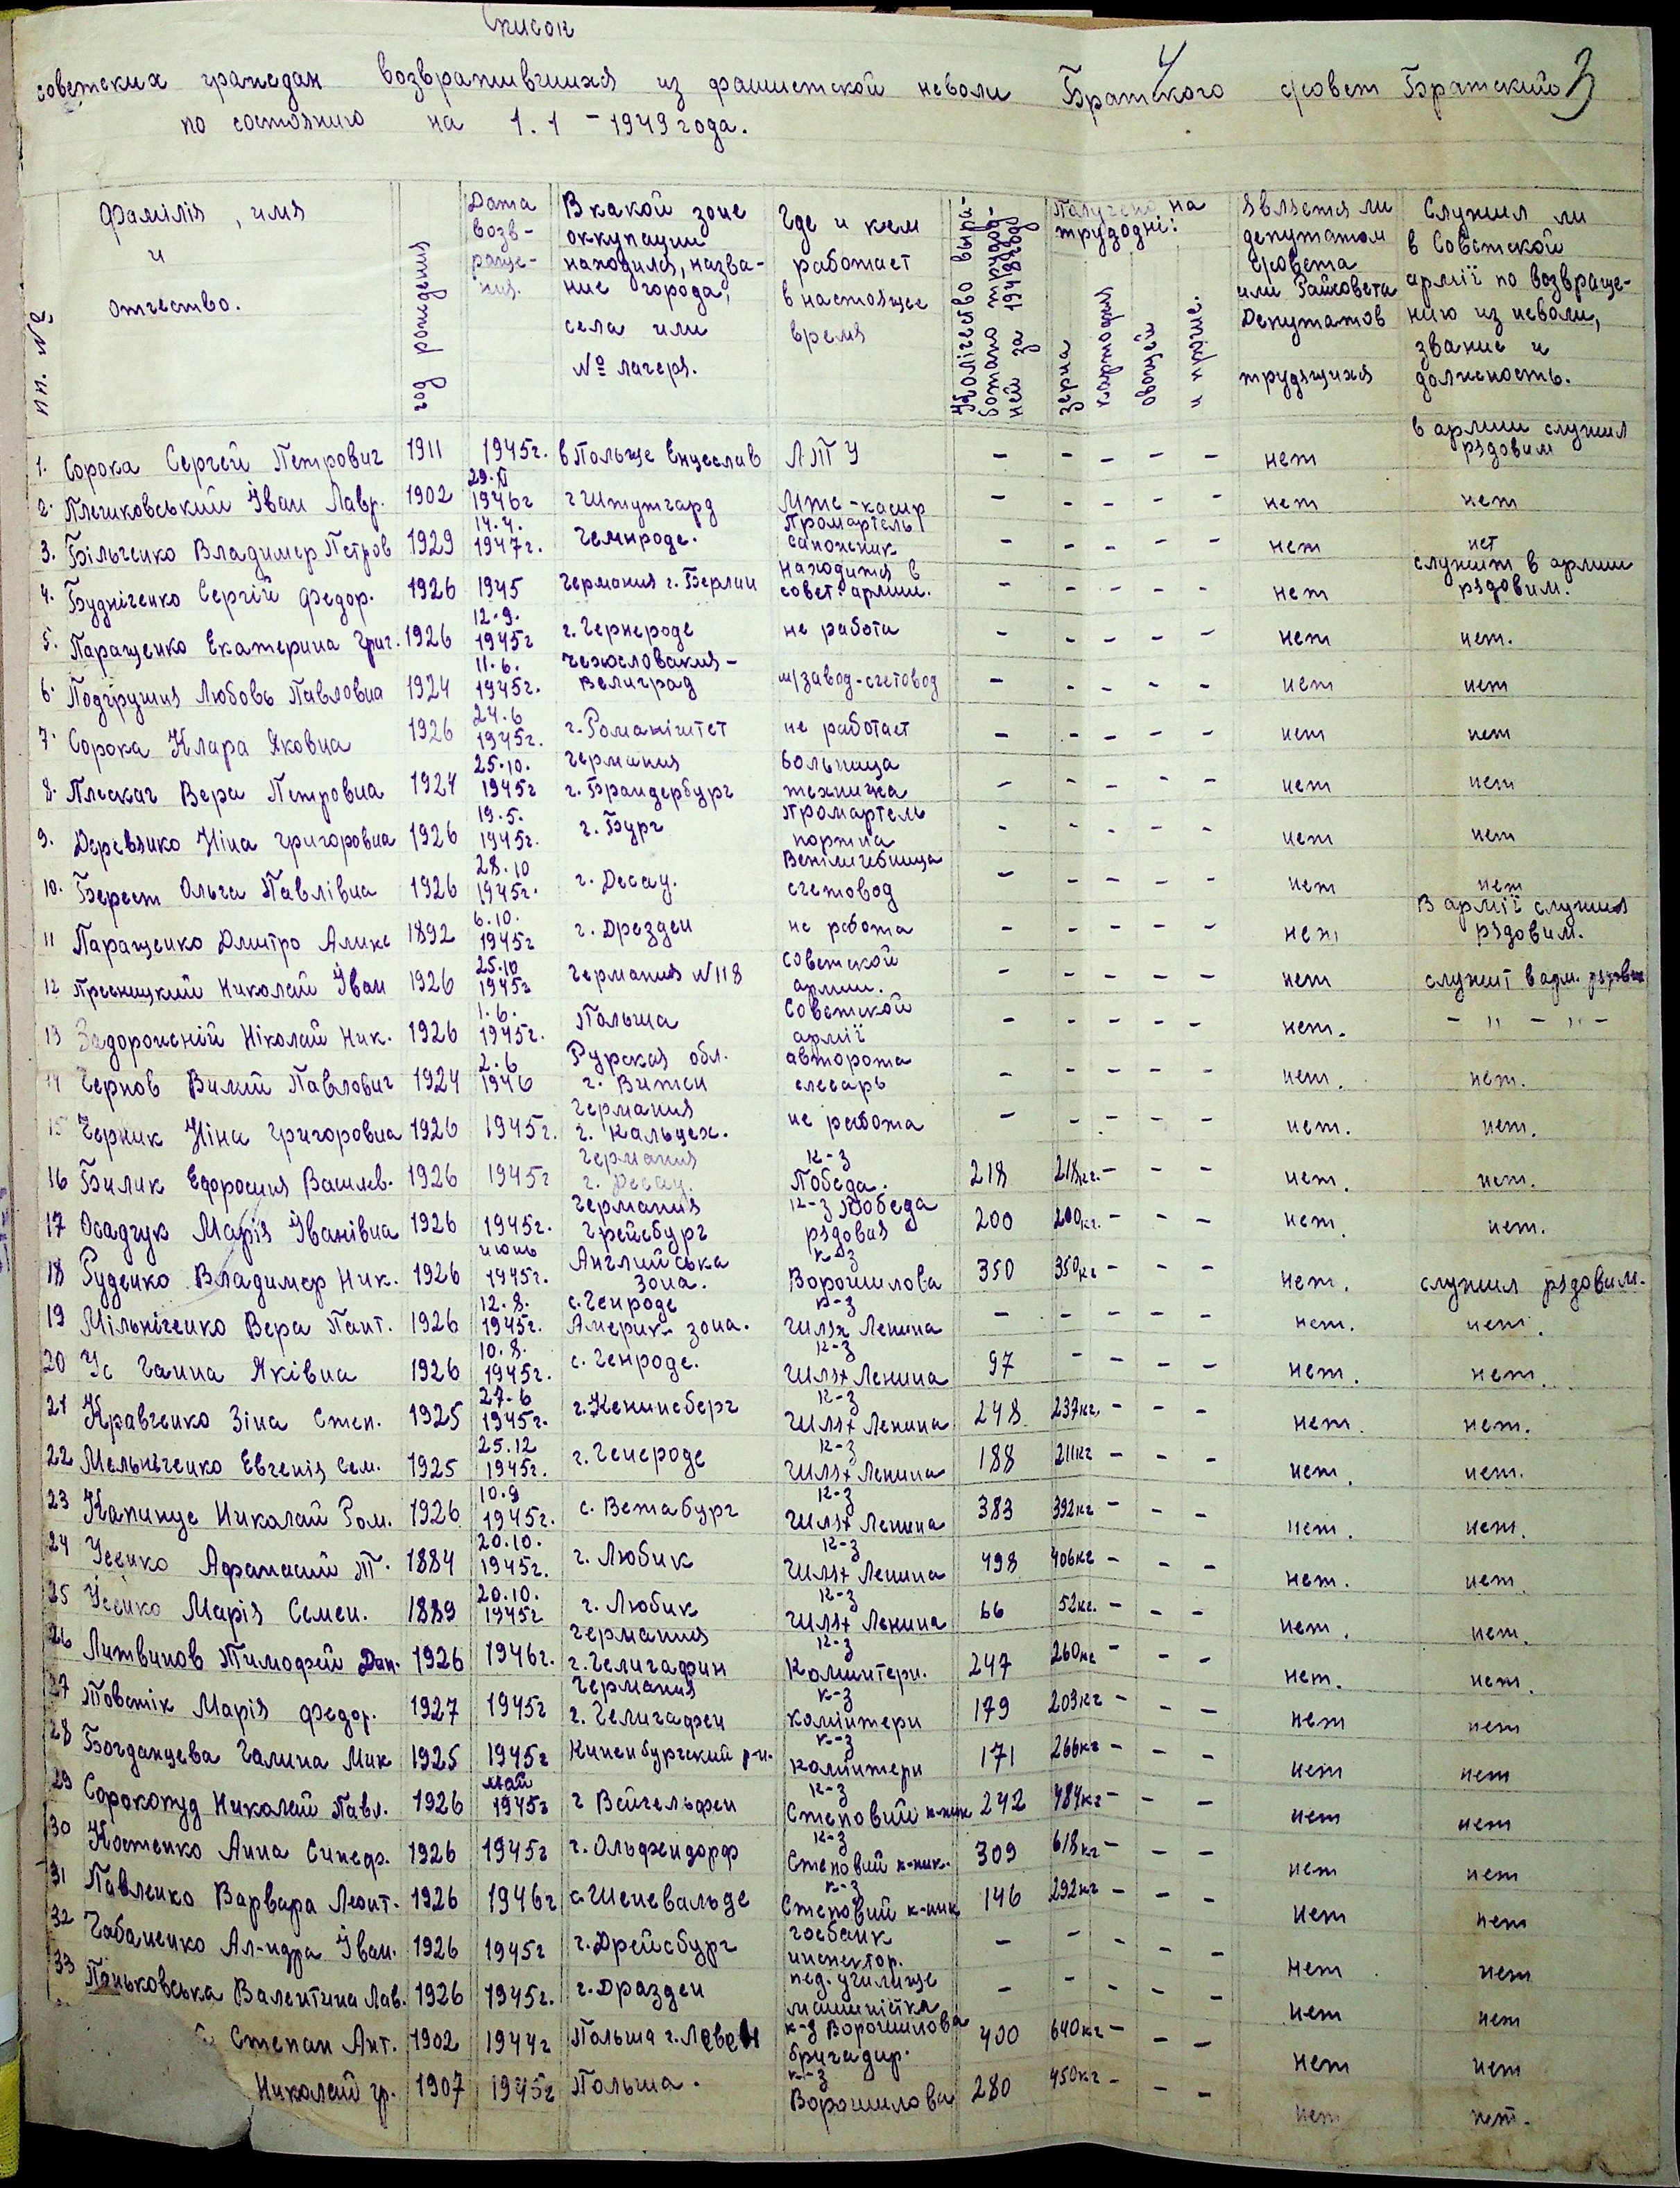 Список
4
3
советских граждан возвратившихся из фашистской неволи Братского с/совет Братский
по состоянию на 1.1-1949 года.
пп. №
Фамілія, имя и отчество.
год рождения
Дата возв-раще-ния.
В какой зоне оккупации находился, назва-ние города, села или № лагеря.
Где и кем работает в настоящее время
Колічество выра-ботано трудод-ней за 1948 год
Палучено на трудодні:
зерна
картофия
овощей
и прочие.
Является ли депутатом с/совета или Райсовета Депутатов трудящихся
Служил ли в Советской армії по возвраще-нию из неволи, звание и должность.
1. Сорока Сергей Петрович 1911 1945г. в Польще ЛМТУ - - - - - нет в армии служил рядовим
2. Іван Лавр. 1902 29.XI 1946г г Штутгард Мтс-касир - - - - - нет нет
3. Більченко Владимер Петров 1929 14.4. 1947г. Гемнроде. Промартель сапожник - - - - - нет нет
4. Будніченко Сергій Федор. 1926 1945 Германия г. Берлин находится в совет. армии. - - - - - нет служит в армии рядовим.
5. Паращенко Екатерина Григ. 1926 12.9. 1945г г. Гернероде не работа - - - - - нет нет.
6. Подгрушня Любовь Павловна 1924 11.6. 1945г. Чехословакия - Велиград м/завод-счетовод - - - - - нет нет
7. Сорока Клара Яковна 1926 24.6 1945г. г. Романштет не работает - - - - - нет нет
8. Плескач Вера Петровна 1924 25.10. 1945г Германия г. Брандербург больница техничка - - - - - нет нет
9. Деревянко Ніна Григоровна 1926 19.5. 1945г. г. Бург Промартель портна - - - - - нет нет
10. Берест Ольга Павлівна 1926 28.10 1945г. г. Десау. Ветлічебница счетовод - - - - - нет нет
11 Паращенко Дмитро Алике 1892 6.10. 1945г г. Дрезден не робота - - - - - нет В армії служил рядовим.
12 Пресницкий Николай Іван 1926 25.10 1945г Германия №118 советской армии. - - - - - нет служит в арм. рядовим
13 Задорожній Ніколай Ник. 1926 1.6. 1945г. Польша Советской армії - - - - - нет. - " - " -
14 Чернов Вилий Павлович 1924 2.6 1946 Рурская обл. г. Витен авторота слесарь - - - - - нет. нет.
15 Черник Ніна Григоровна 1926 1945г. Германия г. Кальцех. не работа - - - - - нет. нет.
16 Билик Ефросиия Василев. 1926 1945г Германия г. Десау. к-з Победа. 218 218кг. - - - нет. нет.
17 Осадчук Марія Іванівна 1926 1945г. Германия Грейсбург к-з Победа рядовая 200 200кг. - - - нет. нет.
18 Руденко Владимер Ник. 1926 июнь 1945г. Английська зона. к-з Ворошилова 350 350кг - - - нет. служил рядовим.
19 Мільніченко Вера Пант. 1926 12.8. 1945г. с. Генроде Америк. зона. к-з Шлях Ленина - - - - - нет. нет.
20 Ус Ганна Яківна 1926 10.8. 1945г. с. Генроде. к-з Шлях Ленина 97 - - - - нет. нет.
21 Кравченко Зіна Степ. 1925 27.6 1945г. г. Кенинсберг к-з Шлях Ленина 248 237кг. - - - нет. нет.
22 Мельніченко Евгенія Сем. 1925 25.12 1945г. г. Генероде к-з Шлях Ленина 188 211кг - - - нет. нет.
23 Капинус Николай Ром. 1926 10.9 1945г. с. Ветабург к-з Шлях Ленина 383 392кг - - - нет. нет.
24 Усенко Афанасий Т. 1884 20.10. 1945г. г. Любик к-з Шлях Ленина 498 406кг - - - нет. нет.
25 Усенко Марія Семен. 1889 20.10. 1945г г. Любик к-з Шлях Ленина 66 52кг. - - - нет. нет.
26 Литвинов Тимофей Дан. 1926 1946г. Германия г. Гелигафин к-з Коминтерн. 247 260кг - - - нет. нет.
27 Товстік Марія Федор. 1927 1945г Германия г. Гелигафен к-з комінтерн 179 203кг - - - нет нет
28 Богданцева Галина Мик 1925 1945г Кипенбургский р-н. к-з комінтерн 171 266кг - - - нет нет
29 Сорокопуд Николай Павл. 1926 май 1945г г Вейгельфен к-з Степовий к-ник 242 484кг - - - нет нет
30 Костенко Анна Синеф. 1926 1945г г. Ольфендорф к-з Степовий к-ник. 309 618кг - - - нет нет
31 Павленко Варвара Леонт. 1926 1946г с. Шеневальде к-з Степовий к-ник 146 292кг - - - нет нет
32 Чабаненко Ал-ндра Іван. 1926 1945г г. Дрейсбург госбанк инспектор. - - - - - нет нет
33 Паньковська Валентина Лав. 1926 1945г. г. Дразден пед. училище машинистка - - - - - нет нет
Степан Ант. 1902 1944г Польша г. Левен к-з Ворошилова бригадир. 400 640кг - - - нет нет
Николай Гр. 1907 1945г Польша. к-з Ворошилова 280 450кг - - - нет нет.